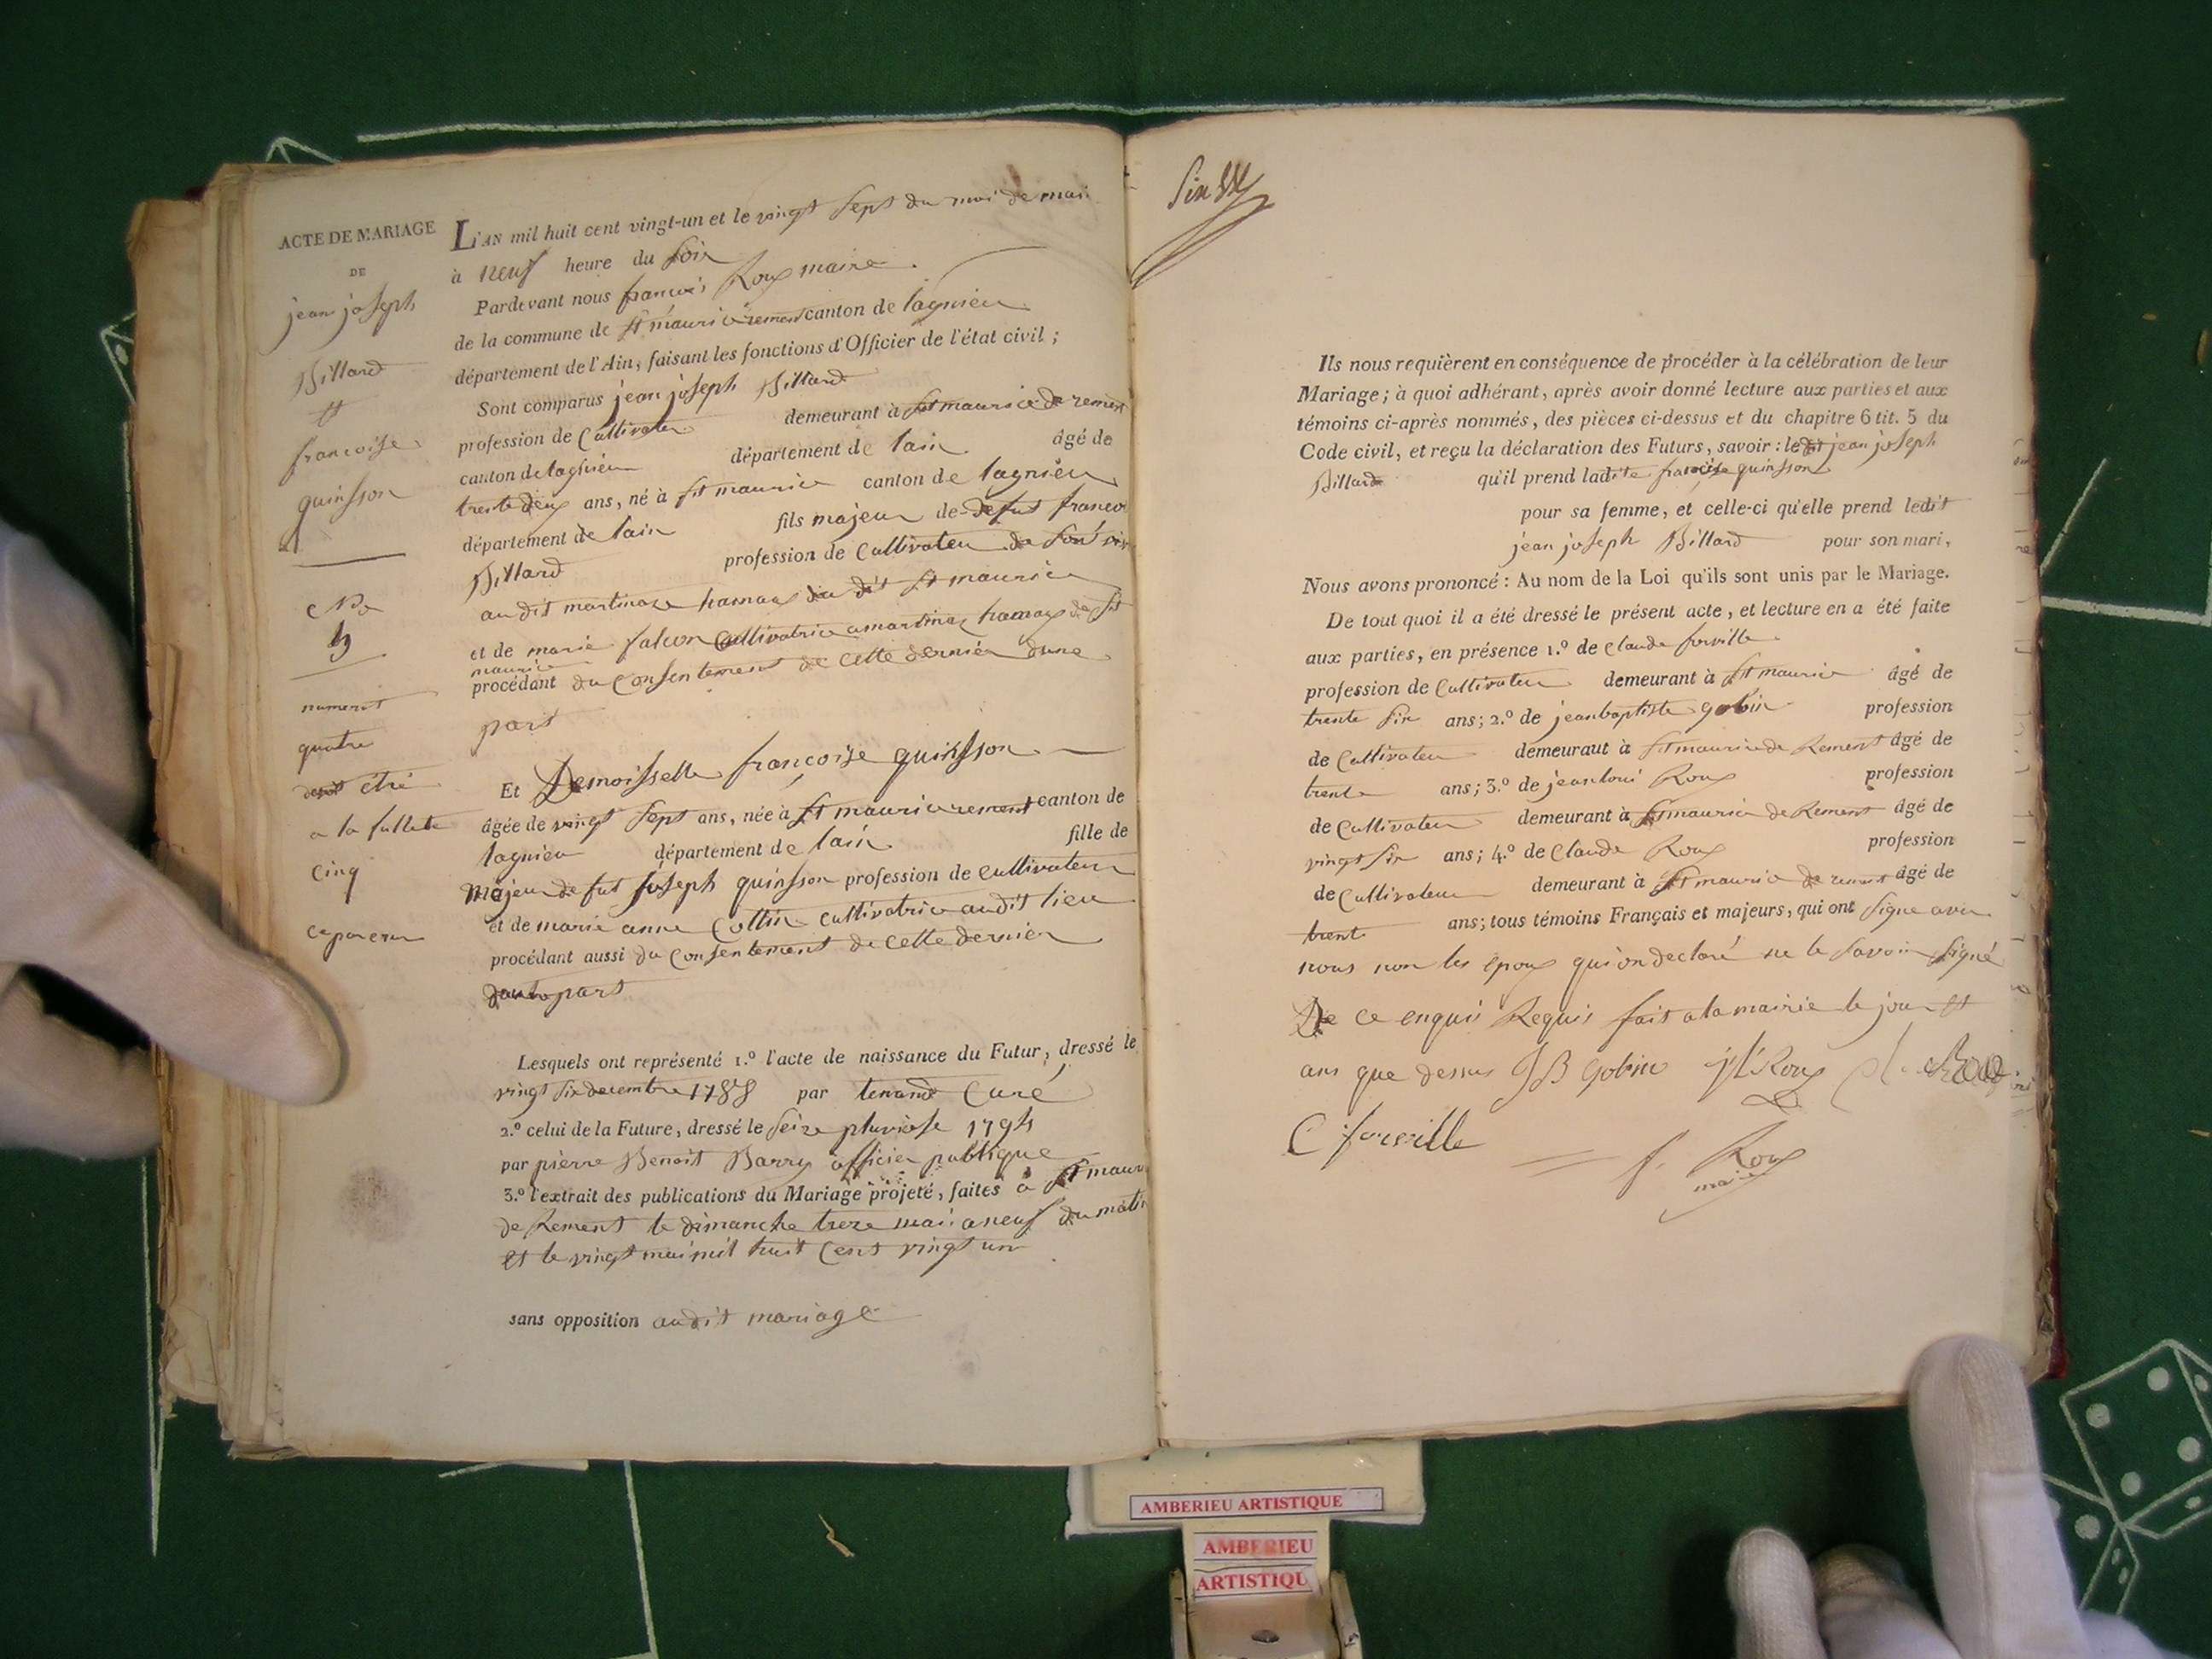 ACTE DE MARIAGE
DE
jean joseph
Billard
et
francoise
quinsson
No
4
numerot
quatre
doit etre
a la fullete
cinq
L'AN mil huit cent vingt-un et le vingt sept du moi de mai
à neuf heure du soir
Pardevant nous francois Roux maire
de la commune de st mauricerement canton de lagnieu
département de l'Ain, faisant les fonctions d'Officier de l'état civil ;
Sont comparus jean joseph Billard
profession de Cultivateur demeurant à st maurice de rement
canton de lagnieu département de lain âgé de
trente deux ans, né à st maurice canton de lagnieu
département de lain fils majeur de defut francoi
Billard profession de Cultivateur de son
audit martinaze hamaux du dit st maurice
et de marie falcon Cultivatrice a martinaz hamaux de st
maurice
procédant du Consentement de cette dernier dune
part
Et Demoisselle françoise quinsson
âgée de vingt sept ans, née à st mauricerement canton de
lagnieu département de lain fille de
majeur de fut joseph quinsson profession de cultivateur
et de marie anne Collin cultivatrice audit lieu
procédant aussi du Consentement de cette dernier
dautr part
Lesquels ont représenté 1.º l'acte de naissance du Futur, dressé le
vingt six decembre 1788 par tenand Curé
2.º celui de la Future, dressé le seize pluviose 1794
par pierre Benoit Barry officier publique
3.º l'extrait des publications du Mariage projeté, faites a st maur
de Rement le dimanche treze mai a neuf du matin
et le vingt mai mil huit Cent vingt un
sans opposition audit mariage
Ils nous requièrent en conséquence de procéder à la célébration de leur
Mariage ; à quoi adhérant, après avoir donné lecture aux parties et aux
témoins ci-après nommés, des pièces ci-dessus et du chapitre 6 tit. 5 du
Code civil, et reçu la déclaration des Futurs, savoir : le dit jean joseph
Billard qu'il prend ladite françoise quinsson
pour sa femme, et celle-ci qu'elle prend ledit
jean joseph Billard pour son mari,
Nous avons prononcé : Au nom de la Loi qu'ils sont unis par le Mariage.
De tout quoi il a été dressé le présent acte, et lecture en a été faite
aux parties, en présence 1.º de Claude forville
profession de Cultivateur demeurant à st maurice âgé de
trente six ans ; 2.º de jeanbaptiste gobin profession
de Cultivateur demeuraut à st maurice de Rement âgé de
trente ans ; 3.º de jeanloui Roux profession
de Cultivateur demeurant à st maurice de Rement âgé de
vingt six ans ; 4.º de Claude Roux profession
de Cultivateur demeurant à st maurice de rement âgé de
trent ans ; tous témoins Français et majeurs, qui ont signe avec
nous non les epoux qui on declaré ne le savoir signé
De ce enquis Requis fait a la mairie le jour et
ans que dessus J B gobin j l Roux
C forville
f. Roux
maire
AMBERIEU ARTISTIQUE
AMBERIEU
ARTISTIQU